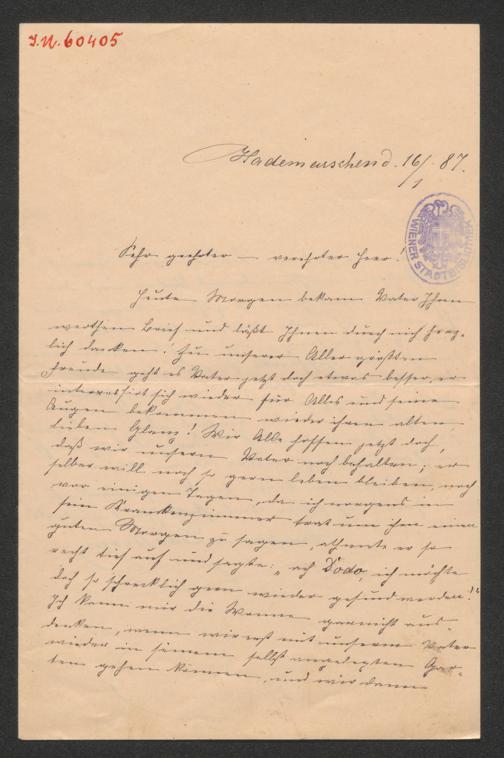 I.N. 60405
Hademarschen d. 16/1. 87.
WIENER STADTBIBLIOTHEK
Sehr geehrter — verehrter Herr!
Heute Morgen bekam Vater Ihren
werthen Brief und läßt Ihnen durch mich herz-
lich danken. Zu unserer Aller größten
Freude geht es Vater jetzt doch etwas besser, er
interessirt sich wieder für Alles und seine
Augen bekommen wieder ihren alten,
lieben Glanz! Wir Alle hoffen jetzt doch,
daß wir unsern Vater noch behalten; er
selber will noch so gern leben bleiben, noch
vor einigen Tagen, da ich morgens in
sein Krankenzimmer trat um ihm einen
guten Morgen zu sagen, athmete er so
recht tief auf und sagte: „ach Dodo, ich möchte
doch so schrecklich gern wieder gesund werden!“
Ich kann mir die Wonne garnicht aus-
denken, wenn wir erst mit unserm Vater
wieder in seinem selbst angelegten Gar-
ten gehen können, und wir dann